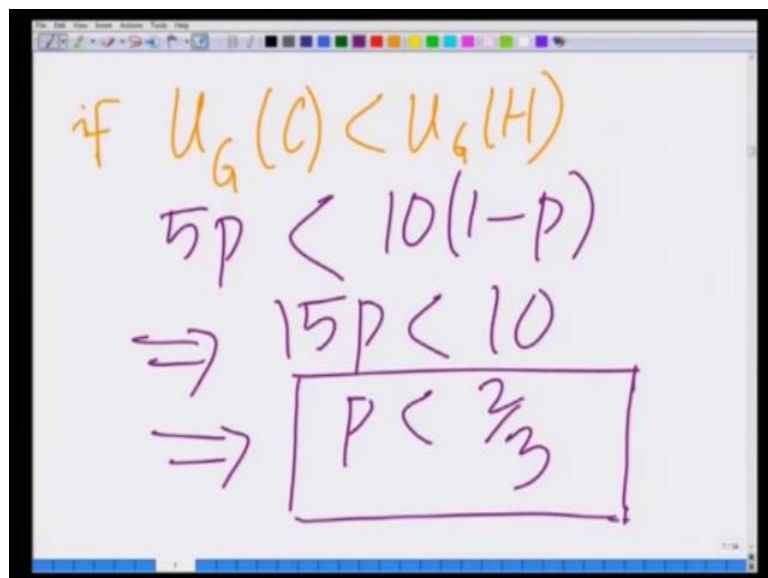 File Edit View Insert Actions Tools Help
if U_G(C) < U_G(H)
5p < 10(1-p)
⇒ 15p < 10
⇒ p < 2/3